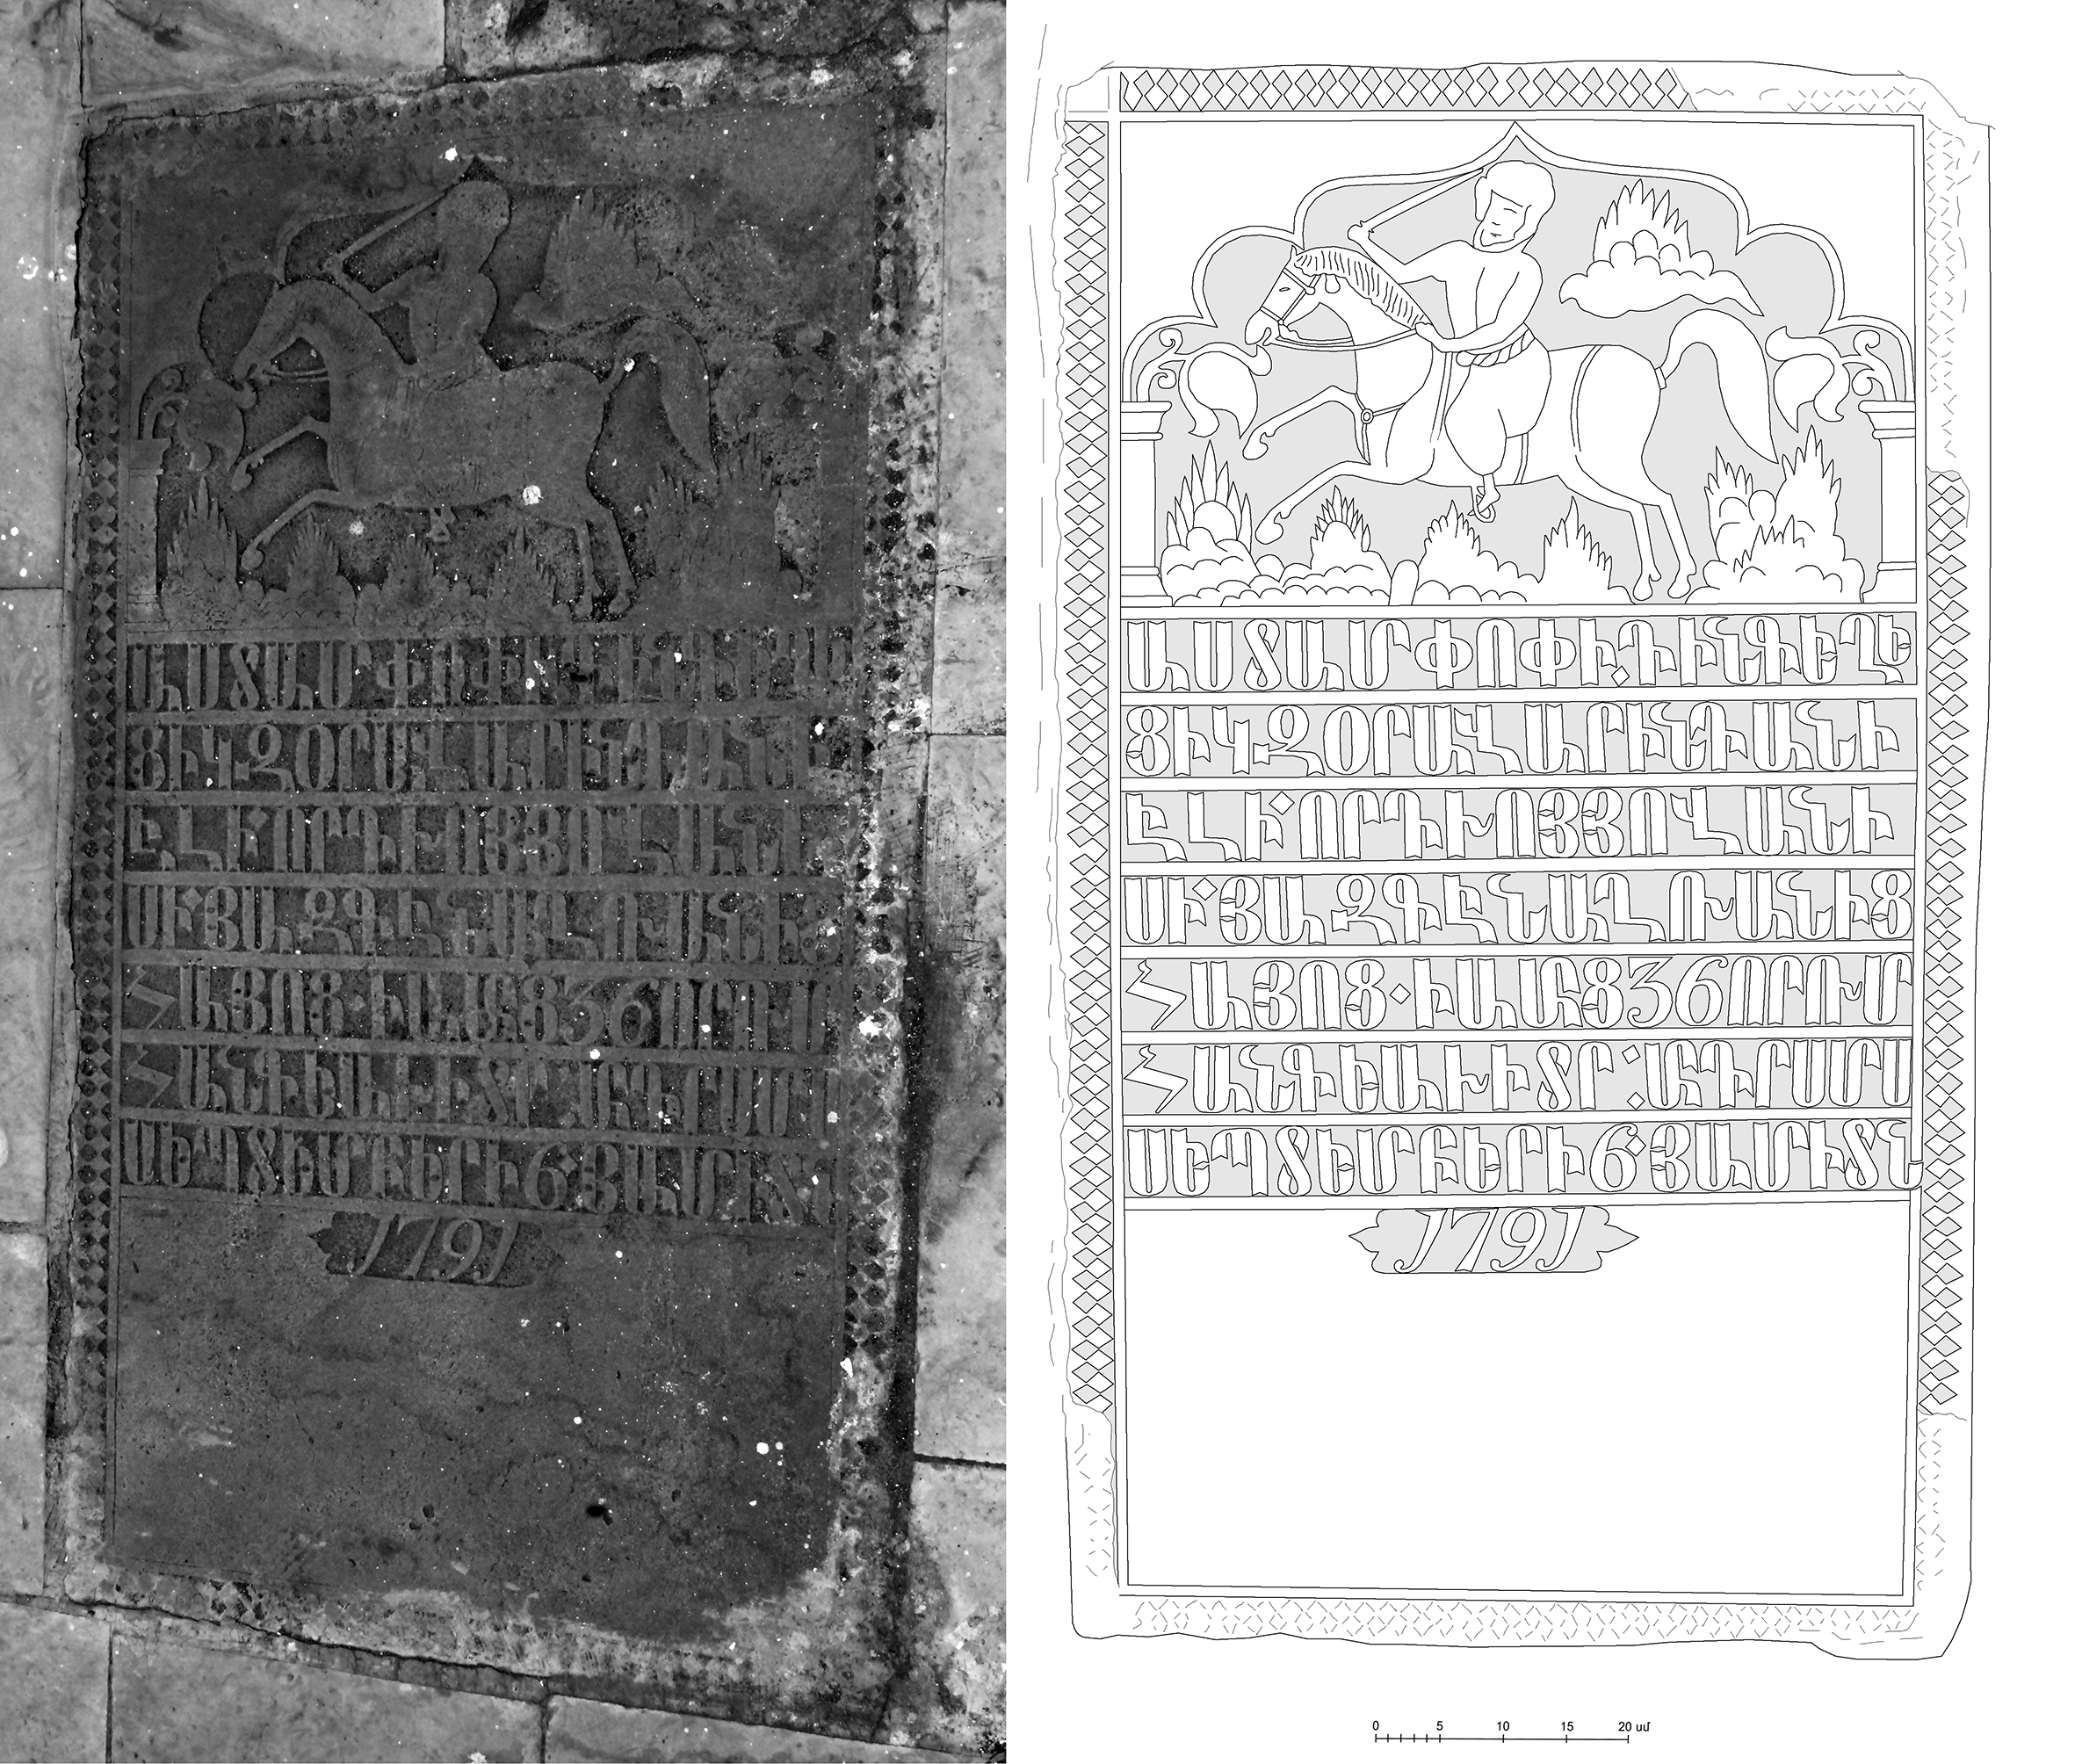 ԱՍՏ ԱՄՓՈՓԻ. ԴԻՆ ԳԵՂԵ
ՑԻԿ ԶՕՐԱՎԱՐԻՆ ԴԱՆԻ
ԷԼԻ. ՈՐԴԻՈՅ ՅՈՎԱՆԻ
ՍԻ. ՅԱԶԳԷՆ ԱՂՈՒԱՆԻՑ
ՀԱՅՈՑ. Ի ԱՄԱՑ 36 ՈՐՈՒՄ
ՀԱՆԳԵԱՒ Ի ՏՐ: ՄԱԴՐ ԱՄՍ
ՍԵՊՏԵՄԲԵՐԻ 6. ՅԱՄԻ ՏՆ
1791
0 5 10 15 20 սմ